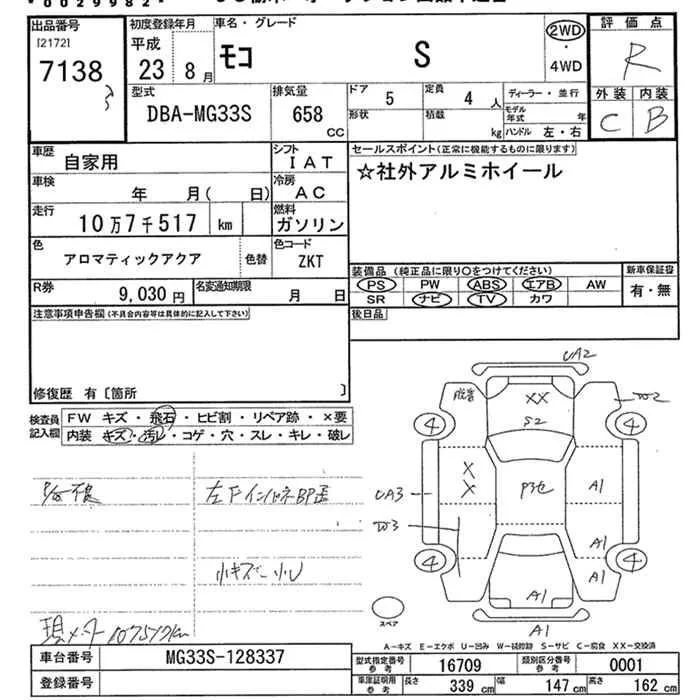 出品番号
[2172]
7138
初度登録年月
平成
23 8月
車名・グレード
モコ S
2WD
・
4WD
評価点
R
外装 内装
C B
型式
DBA-MG33S
排気量
658
CC
ドア
5
定員
4 人
形状
積載
kg
ディーラー・並行
モデル年式 年
ハンドル 左・右
車歴
自家用
シフト
IAT
車検
年 月( 日)
冷房
AC
走行
10万7千517 km
燃料
ガソリン
色
アロマティックアクア
色替
色コード
ZKT
R券
9,030円
名変通知期限
月 日
セールスポイント(正常に機能するものに限ります)
☆社外アルミホイール
装備品(純正品に限り○をつけてください)
PS PW ABS エアB AW
SR ナビ TV カワ
新車保証書
有・無
後日品
注意事項申告欄(不具合内容等は具体的に記入して下さい)
修復歴 有〔箇所 〕
検査員記入欄
FW キズ・飛石・ヒビ割・リペア跡・×要
内装 キズ・汚レ・コゲ・穴・スレ・キレ・破レ
左下インパネBP歪
小キズ 小U
現メータ 107517km
UA2
XX
S2
W2
4
4
X
X
UA3
W3
A1
A1
A1
4
4
A1
スペア
A1
A-キズ E-エクボ U-凹み W-補修跡 S-サビ C-腐食 XX-交換済
車台番号
MG33S-128337
登録番号
型式指定番号
参考
16709
類別区分番号
参考
0001
車庫証明用
参考
長さ
339 cm
幅
147 cm
高さ
162 cm